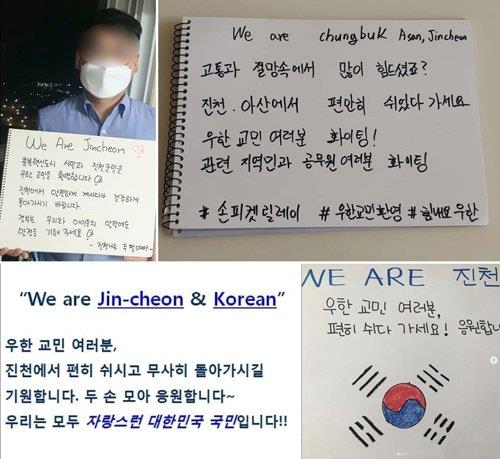 We Are Jincheon
충북혁신도시 시민과 진천군민은
우한 교민을 환영합니다
진천에서 안전하게 계시다가 건강하게
돌아가시기 바랍니다.
정부는 우리와 아이들의 안전에도
만전을 기해 주세요
- 진천사는 두 딸 아빠 -
We are chungbuk Asan, Jincheon
고통과 절망속에서 많이 힘드셨죠?
진천.아산에서 편안히 쉬었다 가세요
우한 교민 여러분 화이팅!
관련 지역민과 공무원 여러분 화이팅
#손피켓릴레이 #우한교민환영 #힘내요우한
“We are Jin-cheon & Korean”
우한 교민 여러분,
진천에서 편히 쉬시고 무사히 돌아가시길
기원합니다. 두 손 모아 응원합니다~
우리는 모두 자랑스런 대한민국 국민입니다!!
WE ARE 진천
우한 교민 여러분,
편히 쉬다 가세요! 응원합니